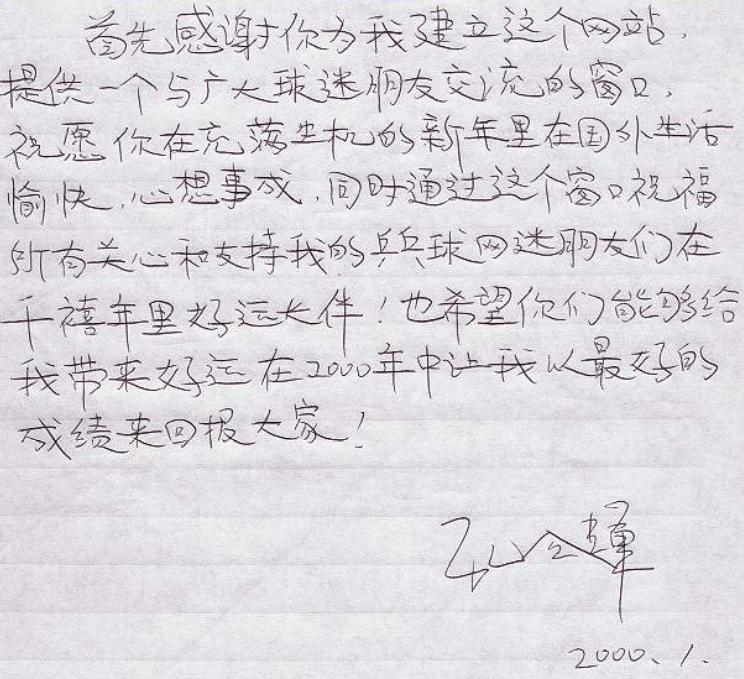 首先感谢你为我建立这个网站，
提供一个与广大球迷朋友交流的窗口，
祝愿你在充满生机的新年里在国外生活
愉快，心想事成，同时通过这个窗口祝福
所有关心和支持我的乒乓球网迷朋友们在
千禧年里好运长伴！也希望你们能够给
我带来好运在2000年中让我以最好的
成绩来回报大家！
2000、1.